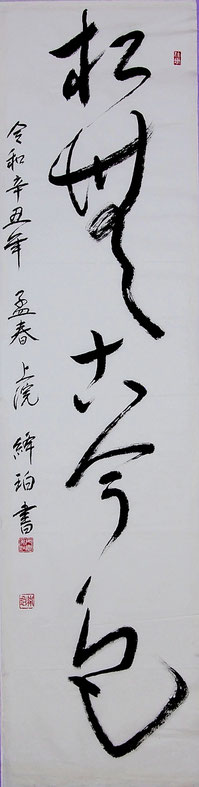 松無古今色
令和辛丑年 孟春 上浣 絳珀書